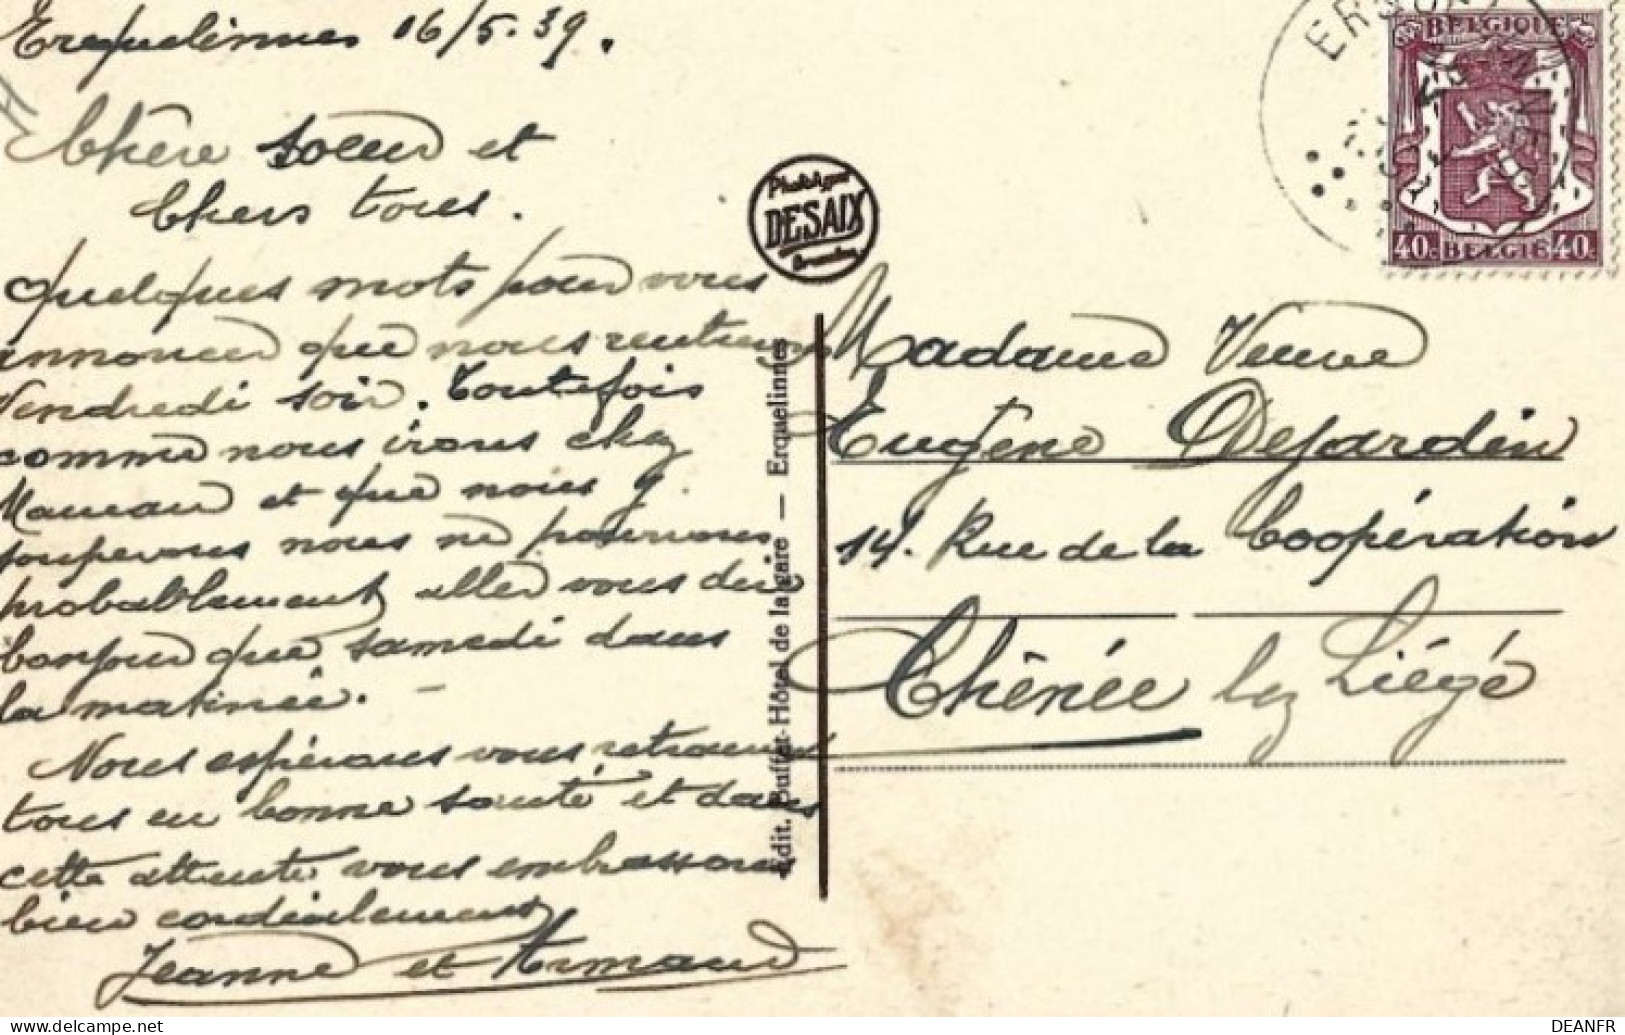 Erquelinnes 16/5.39.
Chère soeur et
Chers tous.
Quelques mots pour vous
annoncer que nous rentrerons
Vendredi soir. Toutefois
comme nous irons chez
Maman et que nous y
souperons nous ne pourrons
probablement aller vous dire
bonjour que samedi dans
la matinée. —
Nous espérons vous retrouver
tous en bonne santé et dans
cette attente vous embrassons
bien cordialement
Jeanne et Armand
Phototypie
DESAIX
Bruxelles
Edit. Buffet-Hôtel de la gare — Erquelinnes
BELGIQUE
40c BELGIE 40c
Madame Veuve
Eugène Dejardin
14. Rue de la Coopération
Chênée lez Liége
DEANFR